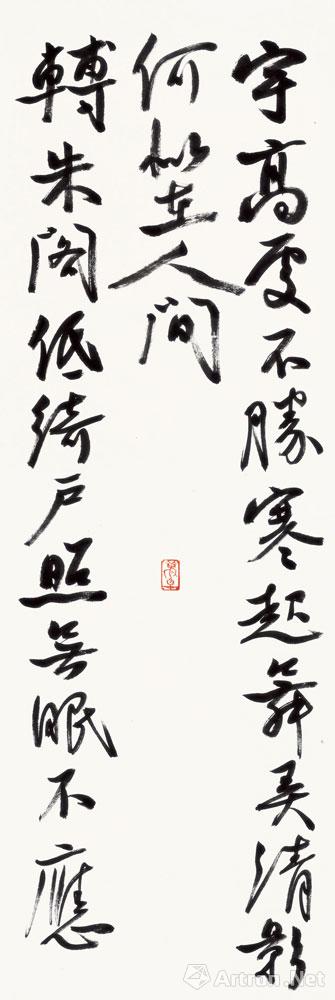 宇高處不勝寒起舞弄清影
何似在人間
轉朱閣低綺戶照無眠不應
Artron.Net